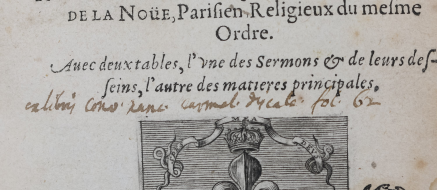 DE LA NOÜE, Parisien Religieux du mesme
Ordre.
Auec deux tables, l'vne des Sermons & de leurs des-
seins, l'autre des matieres principales.
ex libris Conv. carmel. discalc. fol. 62